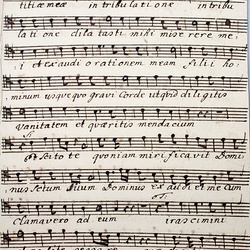 titiæ meæ in tribulati one in tribu
lati one dilatasti mihi mise rere me
i et exaudi orationem meam filii ho
minum usquequo gravi Corde utquid diligitis
Vanitatem et quæritis mendacium
et Scito te quoniam mirificavit Domi
nus Sctum Suum Dominus exaudi et me Cum
Clamavero ad eum irascimini